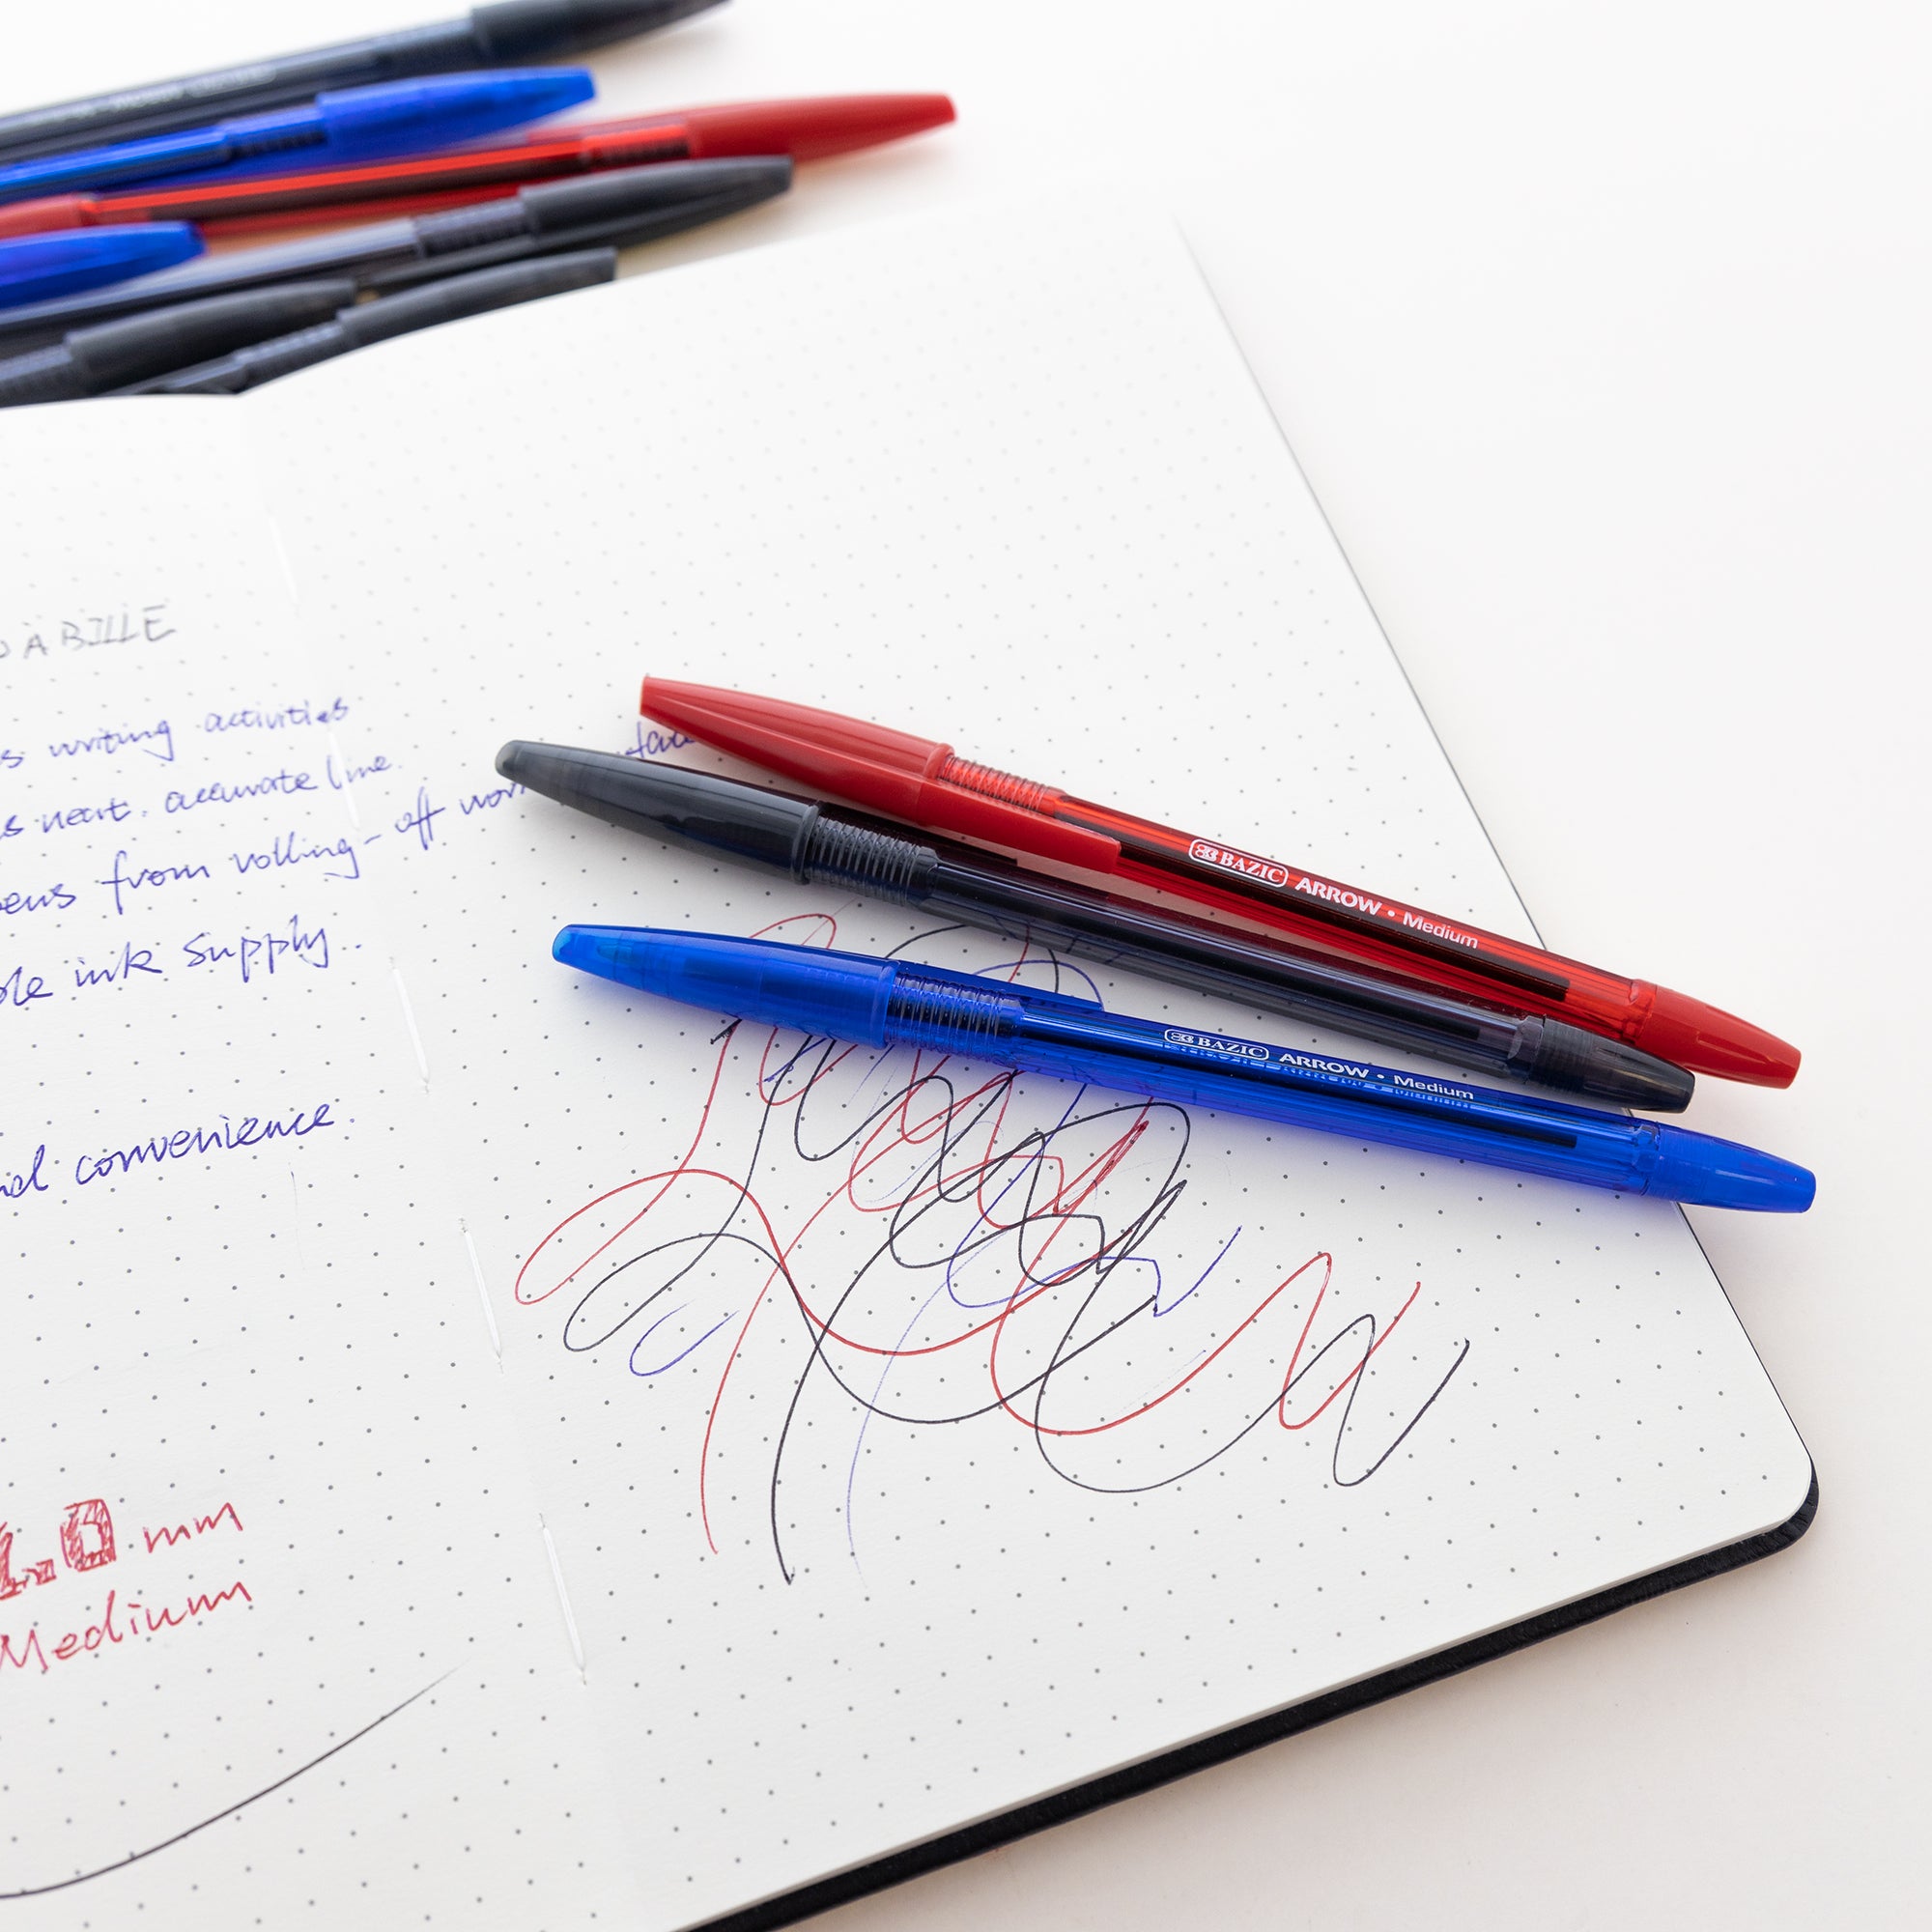 À BILLE
s writing activities
s neat. accurate line.
ens from rolling-off work
ble ink supply.
nd convenience.
1.0 mm
Medium
BAZIC ARROW • Medium
BAZIC ARROW • Medium